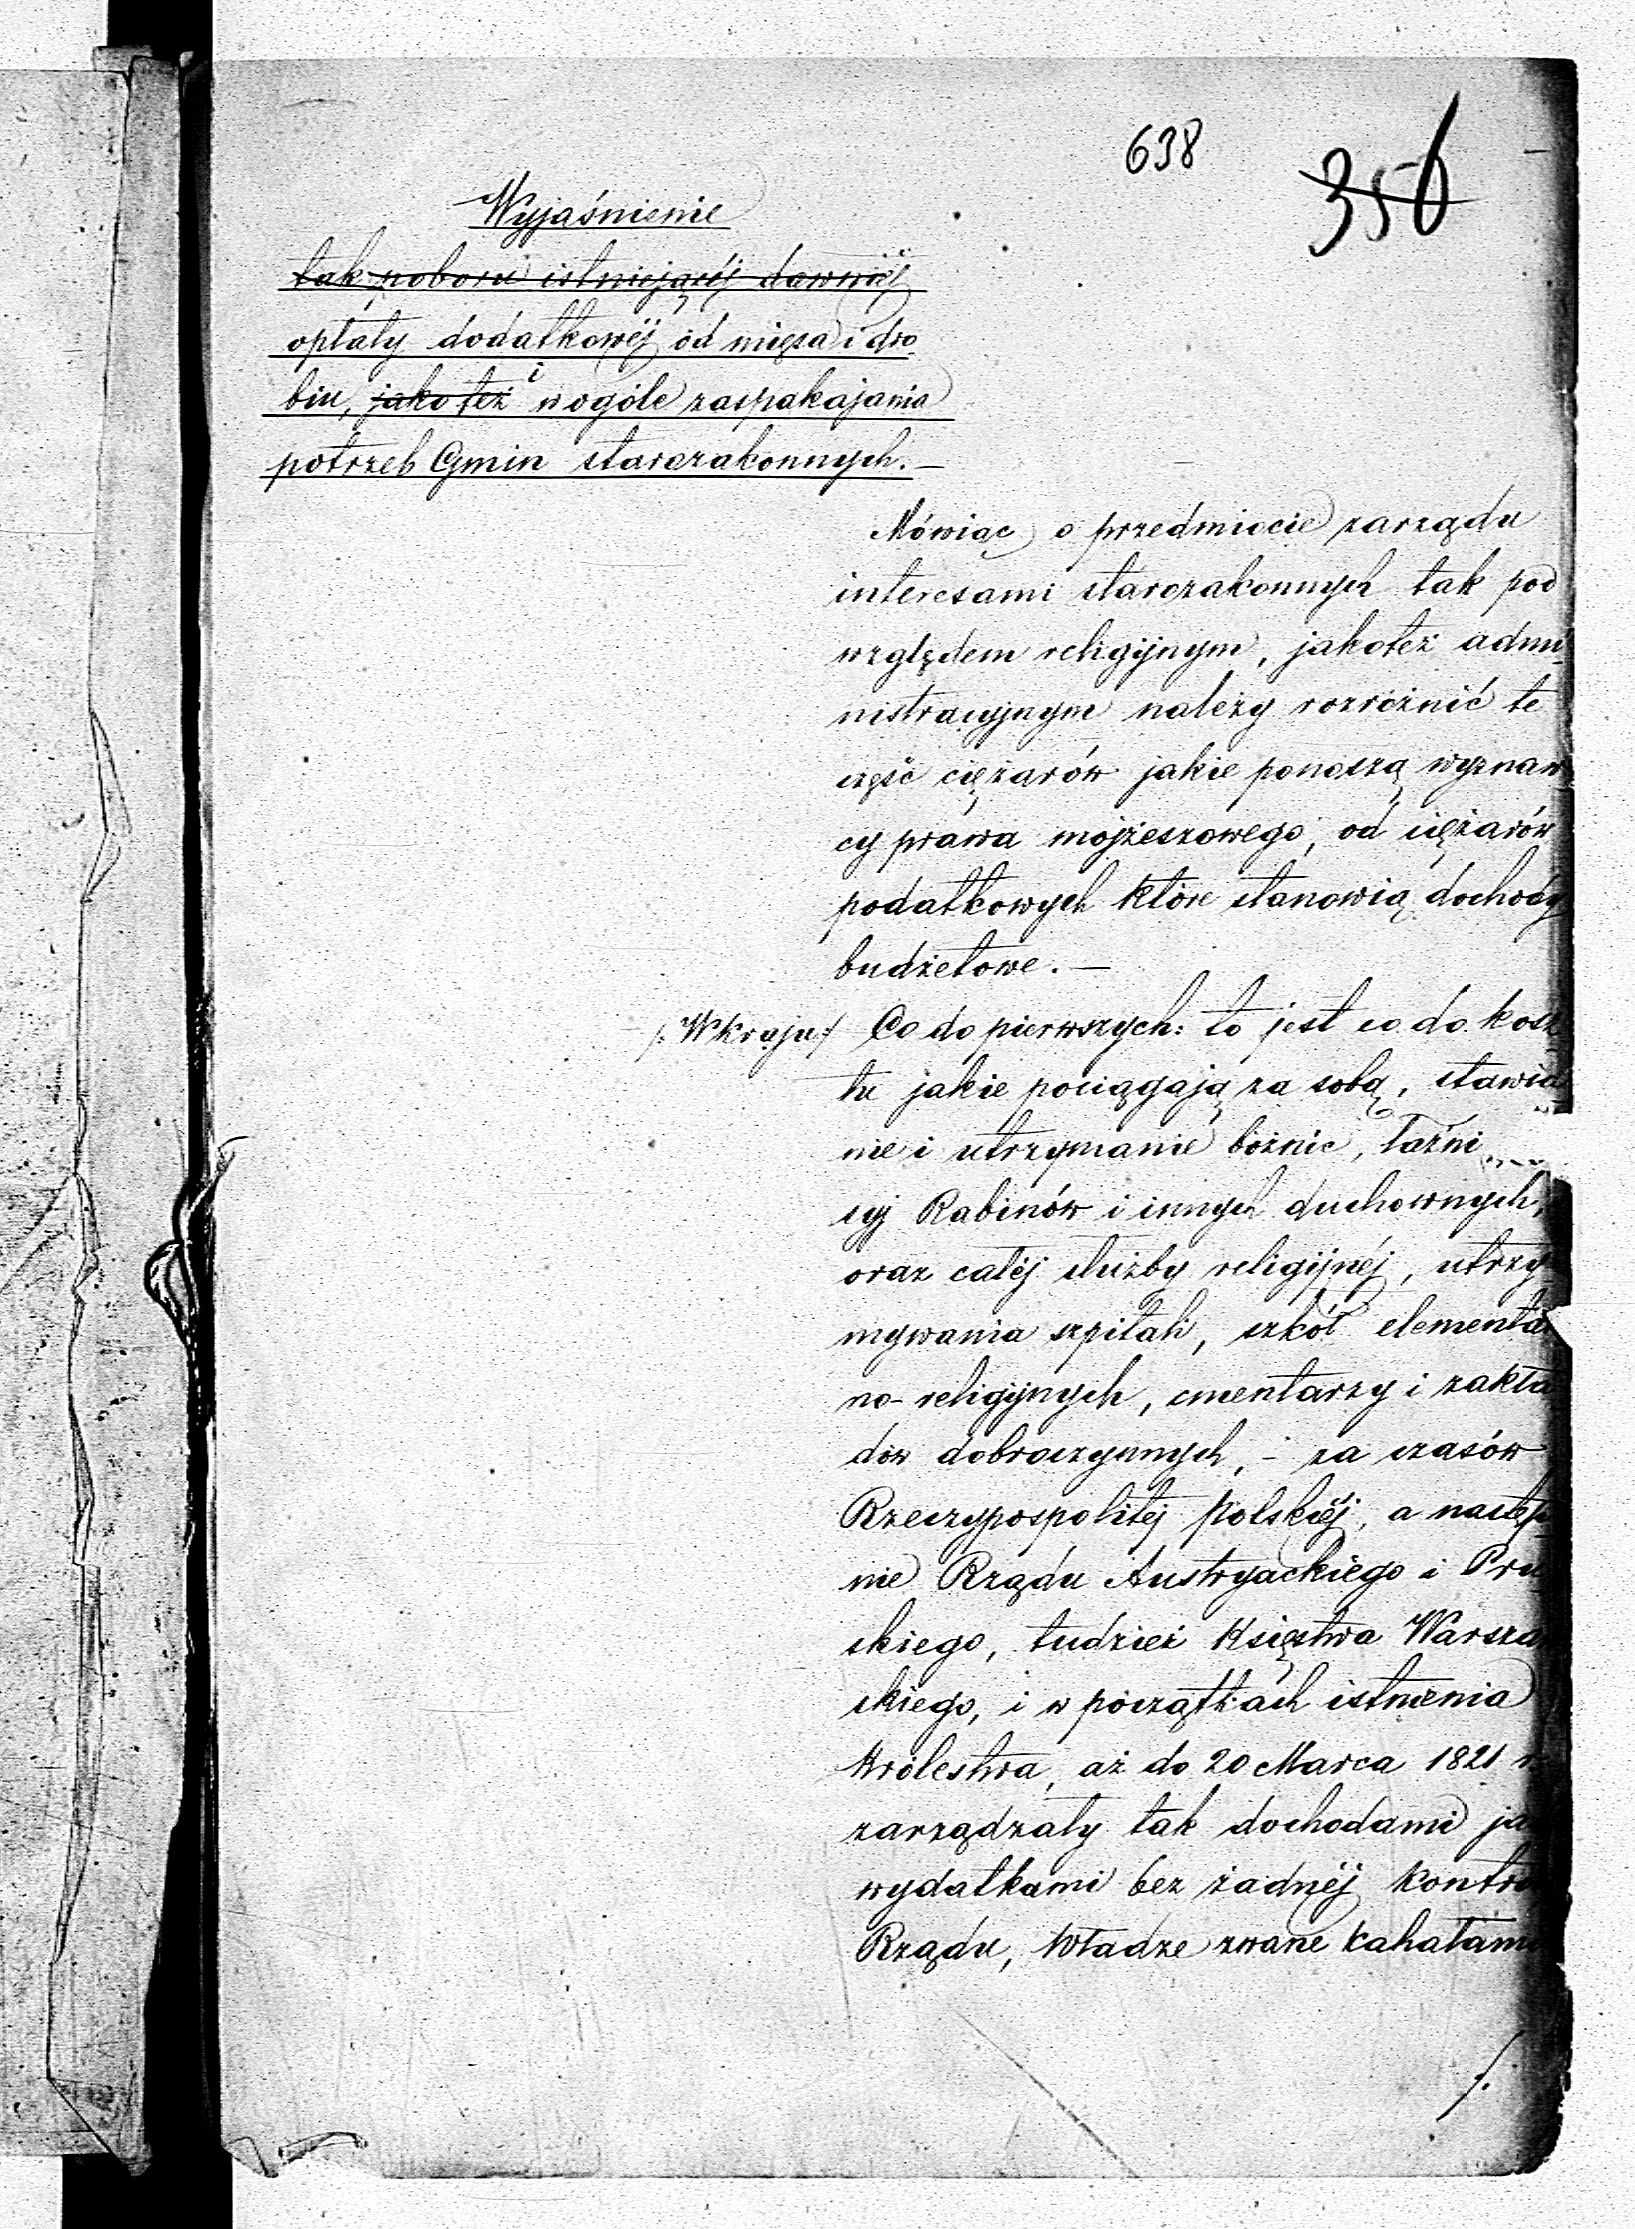 638
356
Wyjaśnienie
tak poboru istniejącéj dawniéj
opłaty dodatkowéj od mięsa i dro
biu, jako też i wogóle zaspakajania
potrzeb Gmin starozakonnych.—
Mówiąc o przedmiocie zarządu
interesami starozakonnych tak pod
względem religijnym, jakoteż admi
nistracyjnym należy rozróżnić te
część ciężarów jakie ponoszą wyznaw
cy prawa mojżeszowego, od ciężarów
podatkowych które stanowią dochody
budżetowe.—
/: W kraju :/ Co do pierwszych: to jest co do kosz
tu jakie pociągają za sobą, stawia
nie i utrzymanie bóżnic, łaźni
cyj Rabinów i innych duchownych,
oraz całéj służby religijnéj, utrzy
mywania szpitali, szkół elementar
no-religijnych, cmentarzy i zakła
dów dobroczynnych, – za czasów
Rzeczypospolitéj Polskiéj, a następ
nie Rządu Austryackiego i Pru
skiego, tudzież Księstwa Warsza
skiego, i w początkach istnienia
Królestwa, aż do 20 Marca 1821 r
zarządzały tak dochodami ja
wydatkami bez żadnéj kontro
Rządu, Władze zwane kahałami
/.